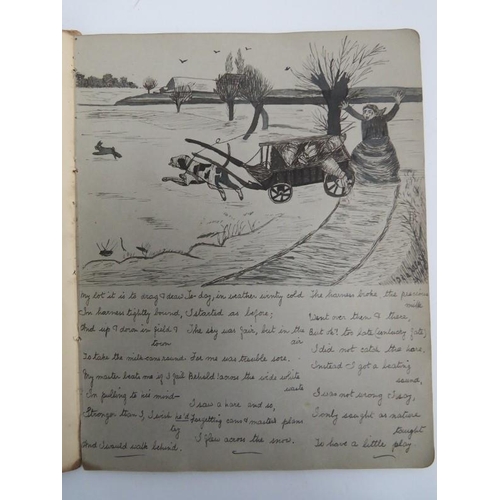 My lot it is to drag & draw
In harness tightly bound,
And up & down in field &
town
To take the milk-cans round.
My master beats me if I fail
In pulling to his mind—
Stronger than I, I wish he'd
try
And I would walk behind.
To-day, in weather wintry cold
I started as before;
The sky was fair, but in the
air
For me was trouble sore.
Behold! across the wide white
waste
I saw a hare and so,
Forgetting cans & master's plans
I flew across the snow.
The harness broke, the precious
milk
Went over then & there,
But oh! too late (unlucky fate)
I did not catch the hare,
Instead I got a beating
sound,
I was not wrong I say,
I only sought as nature
taught
To have a little play.